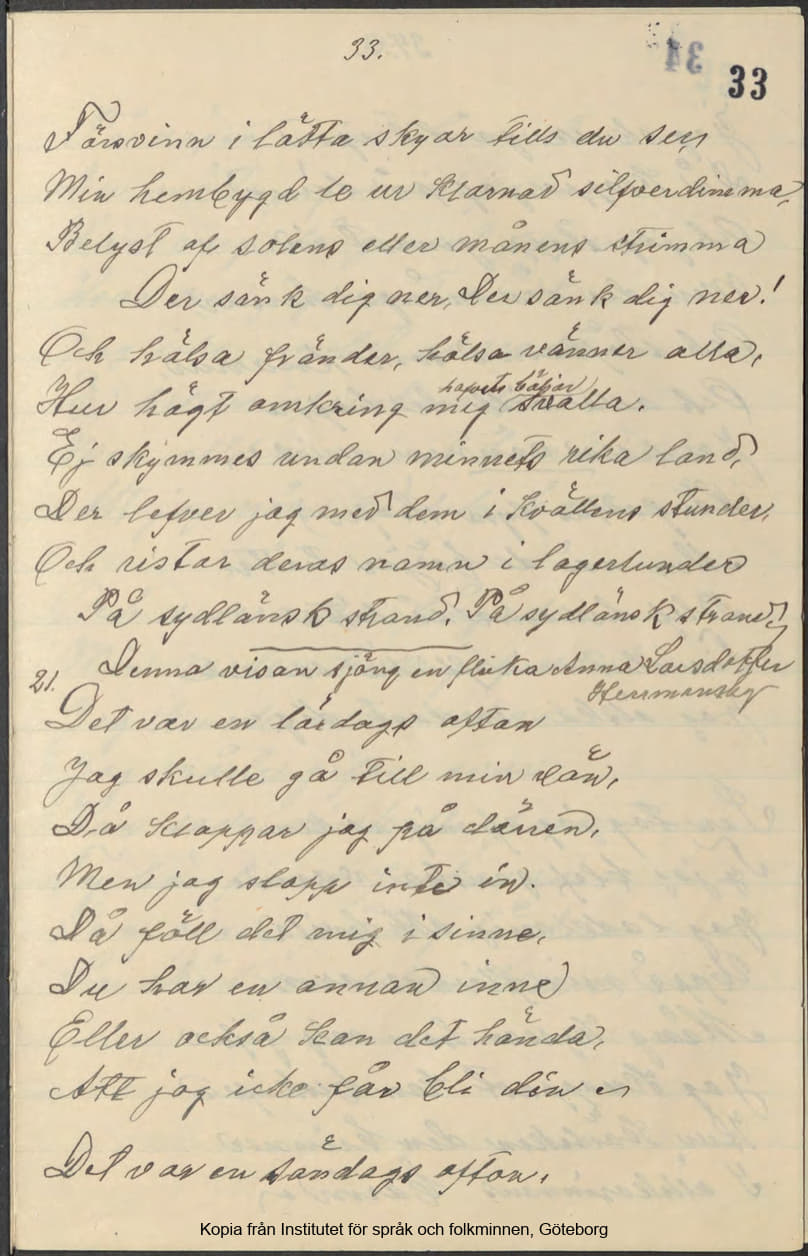 33.
33
Försvinn i lätta skyar tills du ser,
Min hembygd le ur klarnad silfverdimma,
Belyst af solens eller månens strimma
Der sänk dig ner, Der sänk dig ner!
Och hälsa fränder, hälsa vänner alla,
hafvets böljor
Hur högt omkring mig svalla.
Ej skymmes undan minnets rika land,
Der lefver jag med dem i kvällens stunder,
Och ristar deras namn i lagerlunder
På sydländsk strand, På sydländsk strand,
Denna visan sjöng en flicka Anna Larsdotter
21.
Det var en lördags aftan
Jag skulle gå till min vän,
Då klappar jag på dörren,
Men jag slapp inte in.
Då föll det mig i sinne,
Du har en annan inne
Eller också kan det hända,
Att jag icke får bli din
Det var en söndags afton,
Kopia från Institutet för språk och folkminnen, Göteborg